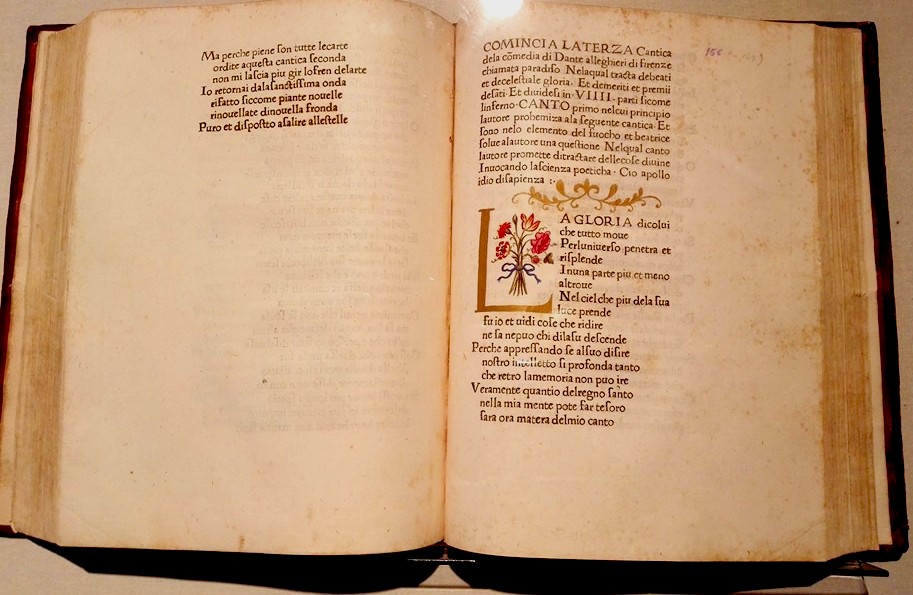 Ma perche piene ſon tutte lecarte
ordite aqueſta cantica ſeconda
non mi laſcia piu gir lofren delarte
Io retornai dalaſanctiſſima onda
rifatto ſiccome piante nouelle
rinouellate dinouella fronda
Puro et diſpoſtto aſalire alleſtelle
COMINCIA LATERZA Cantica
dela comedia di Dante alleghieri di firenze
chiamata paradiſo Nelaqual tracta debeati
et deceleſtiale gloria. Et demeriti et premii
deſāti. Et diuideſi in. VIIII. parti ſicome
linferno. CANTO primo nelcui principio
lautore prohemiza ala ſeguente cantica. Et
ſono nelo elemento del fuocho et beatrice
ſolue alautore una queſtione Nelqual canto
lautore promette ditractare dellecoſe diuine
Inuocando laſcienza poeticha. Cio apollo
idio diſapienza :.
LA GLORIA dicolui
che tutto moue
Perluniuerſo penetra et
riſplende
Inuna parte piu et meno
altroue
Nelciel che piu dela ſua
luce prende
fu io et uidi coſe che ridire
ne ſa nepuo chi dilaſu deſcende
Perche appreſſando ſe alſuo diſire
noſtro intelletto ſi profonda tanto
che retro lamemoria non puo ire
Veramente quantio delregno ſanto
nella mia mente pote far teſoro
ſara ora matera delmio canto